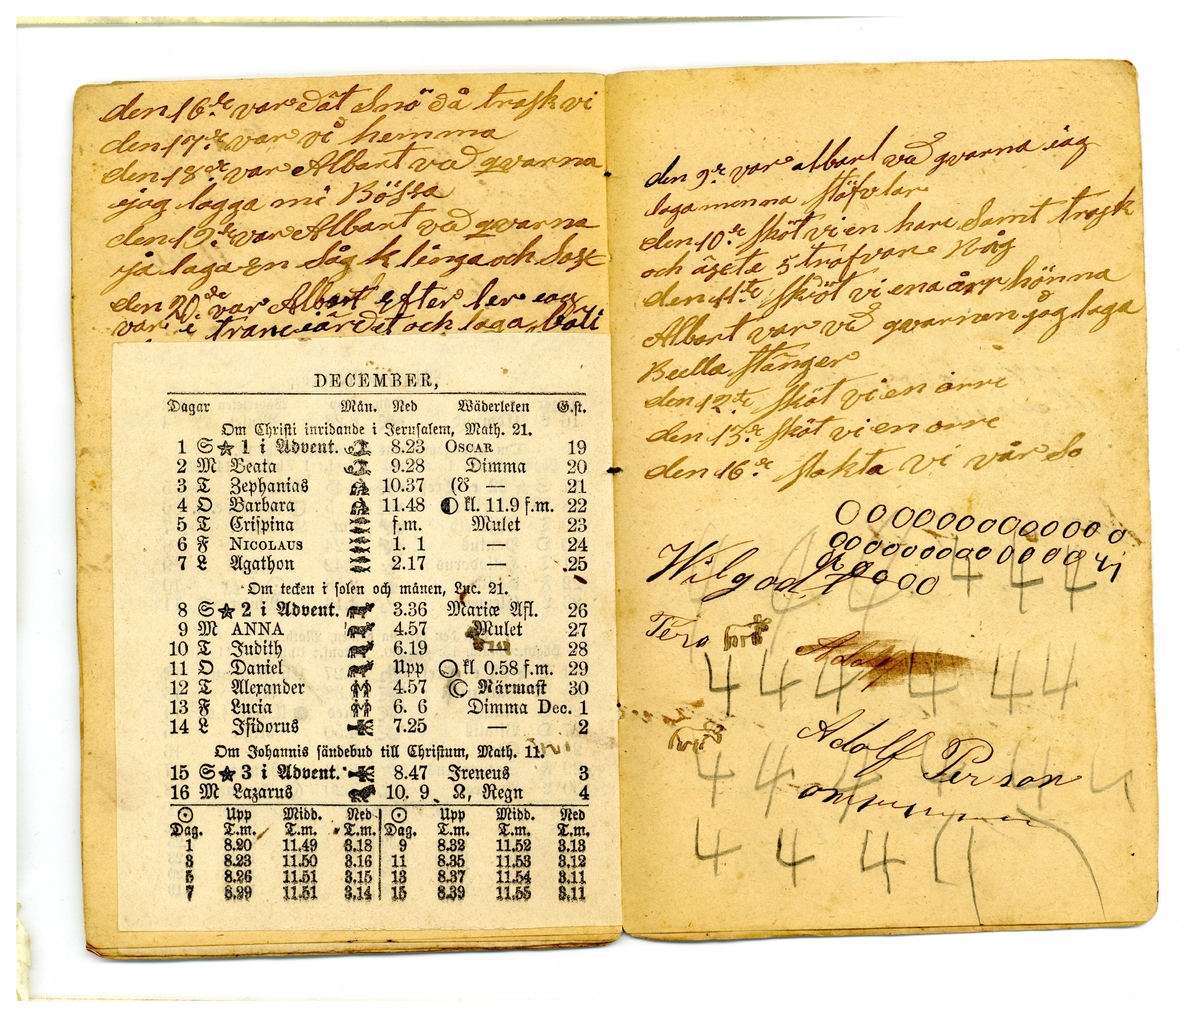 den 16de var dät Snö då trask vi
den 17de var vi hemma
den 18de var Albart vid qvarna
jag lagga mi Bössa
den 19de var Albart vid qvarna
ja laga en Såg klinga och
den 20de var Albart efter ler jag
var i och laga
DECEMBER,
Dagar Mån. Ned Wäderleken G.st.
Om Christi inridande i Jerusalem, Math. 21.
1 S ★ 1 i Advent. 8.23 OSCAR 19
2 M Beata 9.28 Dimma 20
3 T Zephanias 10.37 — 21
4 O Barbara 11.48 ◐ kl. 11.9 f.m. 22
5 T Crispina f.m. Mulet 23
6 F NICOLAUS 1. 1 — 24
7 L Agathon 2.17 — 25
Om tecken i solen och månen, Luc. 21.
8 S ★ 2 i Advent. 3.36 Mariæ Afl. 26
9 M ANNA 4.57 Mulet 27
10 T Judith 6.19 28
11 O Daniel Upp ○ kl. 0.58 f.m. 29
12 T Alexander 4.57 Närmast 30
13 F Lucia 6. 6 Dimma Dec. 1
14 L Isidorus 7.25 — 2
Om Johannis sändebud till Christum, Math. 11.
15 S ★ 3 i Advent. 8.47 Ireneus 3
16 M Lazarus 10. 9 ☊, Regn 4
☉ Upp Midd. Ned ☉ Upp Midd. Ned
Dag. T.m. T.m. T.m. Dag. T.m. T.m. T.m.
1 8.20 11.49 3.18 9 8.32 11.52 3.13
3 8.23 11.50 3.16 11 8.35 11.53 3.12
5 8.26 11.51 3.15 13 8.37 11.54 3.11
7 8.29 11.51 3.14 15 8.39 11.55 3.11
den 9de var albart vid qvarna jag
laga minna stöfvlar
den 10de sköt vi en hare Samt trask
och 5 trafvar Råg
den 11te sköt vi ena årr hönna
Albart var vid qvarnen jag laga
stänger
den 12te sköt vi en orre
den 13de sköt vi en orre
den 16de slakta vi vår So
4 4 4 4 4 4
Adolf
4 4 4 4 4 4
Adolf Person
4 4 4 4 4
4 4 4